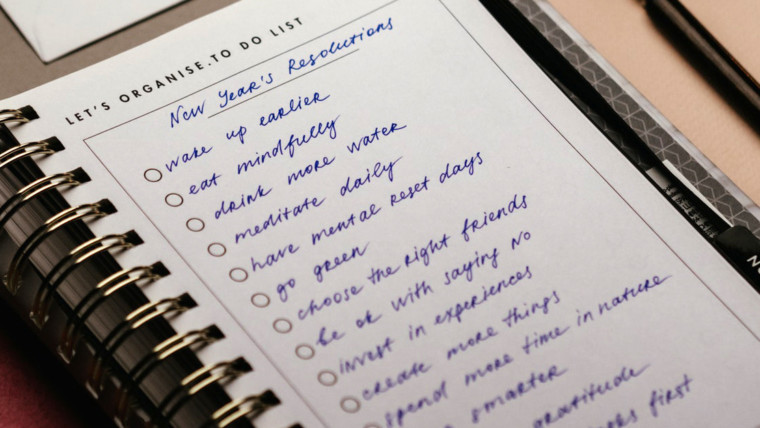 LET'S ORGANISE.TO DO LIST
New Year's Resolutions
wake up earlier
eat mindfully
drink more water
meditate daily
have mental reset days
go green
choose the right friends
be ok with saying NO
invest in experiences
create more things
spend more time in nature
smarter
gratitude
first